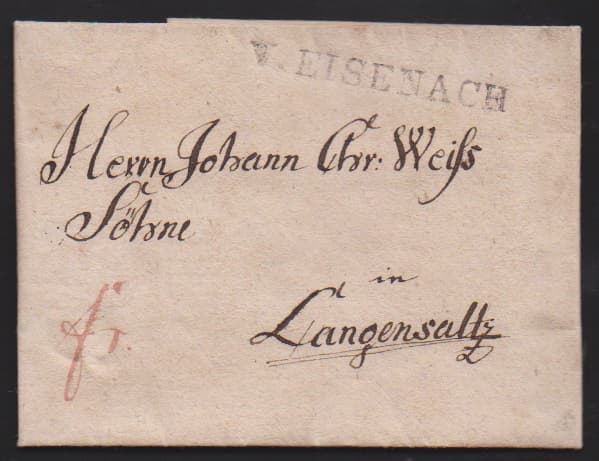 V. EISENACH
Herrn Johann Chr: Weiſs
Söhne
in
Langensaltz
fr.